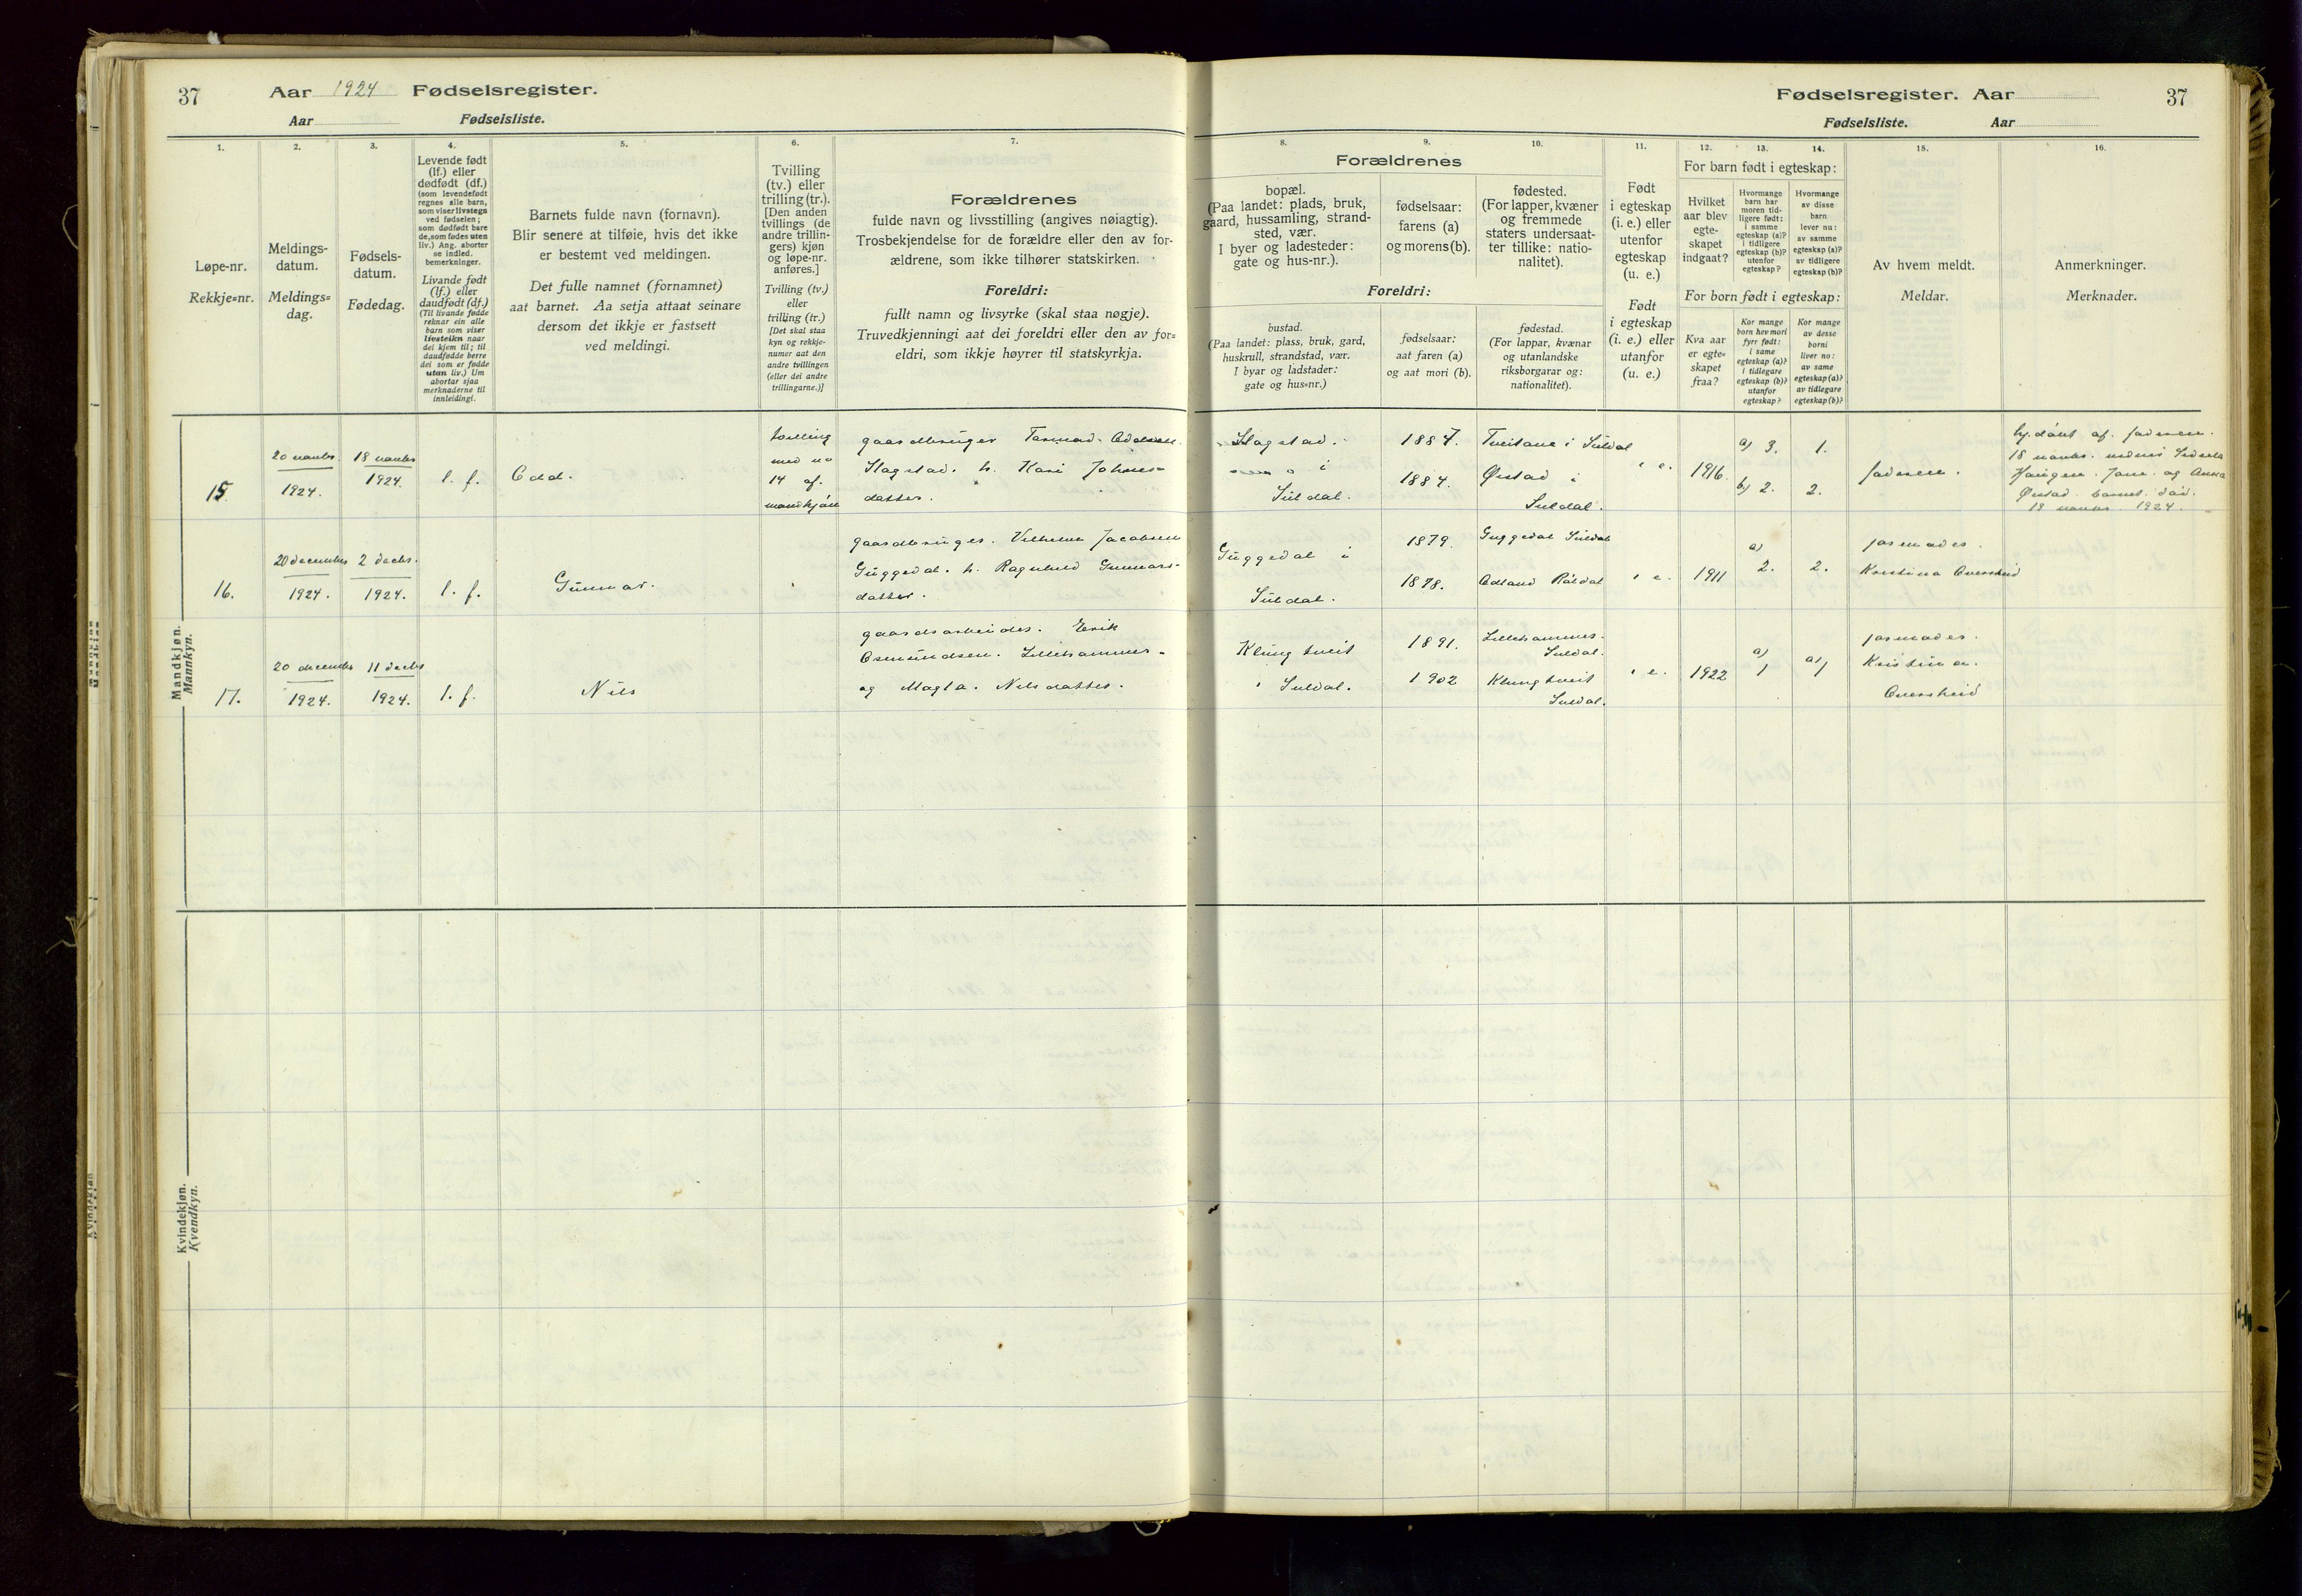 37
Aar 1924 Fødselsregister.
Aar Fødselsliste.
Fødselsregister. Aar
37
Fødselsliste. Aar
1.
2.
3.
4.
5.
6.
7.
8.
9.
10.
11.
12.
13.
14.
15.
16.
Løpe-nr.
Rekkje=nr.
Meldings-
datum.
Meldings=
dag.
Fødsels-
datum.
Fødedag.
Levende født
(lf.) eller
dødfødt (df.)
(som levendefødt
regnes alle barn,
som viser livstegn
ved fødselen;
som dødfødt bare
de, som fødes uten
liv.) Ang. aborter
se indled.
bemerkninger.
Livande født
(lf.) eller
daudfødt (df.)
(Til livande fødde
reknar ein alle
barn som viser
livsteikn naar
dei kjem til; til
daudfødde berre
dei som er fødde
utan liv.) Um
abortar sjaa
merknaderne til
innleidingi.
Barnets fulde navn (fornavn).
Blir senere at tilføie, hvis det ikke
er bestemt ved meldingen.
Det fulle namnet (fornamnet)
aat barnet. Aa setja attaat seinare
dersom det ikkje er fastsett
ved meldingi.
Tvilling
(tv.) eller
trilling (tr.).
[Den anden
tvillings (de
andre trillin-
gers) kjøn
og løpe-nr.
anføres.]
Tvilling (tv.)
eller
trilling (tr.)
[Det skal staa
kyn og rekkje-
numer aat den
andre tvillingen
(eller dei andre
trillingarne.)]
Forældrenes
fulde navn og livsstilling (angives nøiagtig).
Trosbekjendelse for de forældre eller den av for-
ældrene, som ikke tilhører statskirken.
Foreldri:
fullt namn og livsyrke (skal staa nøgje).
Truvedkjenningi aat dei foreldri eller den av for=
eldri, som ikkje høyrer til statskyrkja.
Forældrenes
bopæl.
(Paa landet: plads, bruk,
gaard, hussamling, strand-
sted, vær.
I byer og ladesteder:
gate og hus-nr.).
fødselsaar:
farens (a)
og morens (b).
fødested.
(For lapper, kvæner
og fremmede
staters undersaat-
ter tillike: natio-
nalitet).
Foreldri:
bustad.
(Paa landet: plass, bruk, gard,
huskrull, strandstad, vær.
I byar og ladstader:
gate og hus=nr.)
fødselsaar:
aat faren (a)
og aat mori (b).
fødestad.
(For lappar, kvænar
og utanlandske
riksborgarar og:
nationalitet).
Født
i egteskap
(i. e.) eller
utenfor
egteskap
(u. e.)
Født
i egteskap
(i. e.) eller
utanfor
(u. e.)
For barn født i egteskap:
Hvilket
aar blev
egte-
skapet
indgaat?
Hvormange
barn har
moren tid-
ligere født:
i samme
egteskap (a)?
i tidligere
egteskap (b)?
utenfor
egteskap?
Hvormange
av disse
barn
lever nu:
av samme
egteskap (a)?
av tidligere
egteskap (b)?
For born født i egteskap:
Kva aar
er egte=
skapet
fraa?
Kor mange
born hev mori
fyrr født:
i same
egteskap (a)?
i tidlegare
egteskap (b)?
utanfor
egteskap?
Kor mange
av desse
borni
liver no:
av same
egteskap (a)?
av tidlegare
egteskap (b)?
Av hvem meldt.
Meldar.
Anmerkninger.
Merknader.
Mandkjøn.
Mannkyn.
15.
20 novbr.
1924.
18 novbr
1924.
l. f.
Odd.
tvilling
med no
14 af.
mandkjøn
gaardbruger
Slagstad. h. Kari Johnes-
datter.
Slagstad.
i
Suldal.
1887.
1884.
Tveitane i Suldal
Ørstad i
Suldal.
i e.
1916.
a) 3.
b) 2.
1.
2.
faderen.
hj. døbt af. faderen.
18 novbr.
Haugen.
Ørstad. barnet. død.
18 novbr. 1924.
16.
20 december
1924.
2 decbr.
1924.
l. f.
Gunnar.
gaardbruger. Vilhelm Jacobsen
Guggedal. h. Ragnhild Gunnars-
datter.
Guggedal i
Suldal.
1879.
1878.
Guggedal Suldal
Røldal
i e.
1911
a)
2.
2.
jormoder.
Kristina
17.
20 december
1924.
11 decbr
1924.
l. f.
Nils
gaardsarbeider. Erik
Osmundsen. Lillehammer-
og Magla. Nilsdatter.
Klungtveit
i Suldal.
1891.
1902
Lillehammer.
Suldal.
Klungtveit
Suldal.
i e.
1922
a)
1
a) 1
jormoder.
Kristina.
Kvindekjøn.
Kvendkyn.